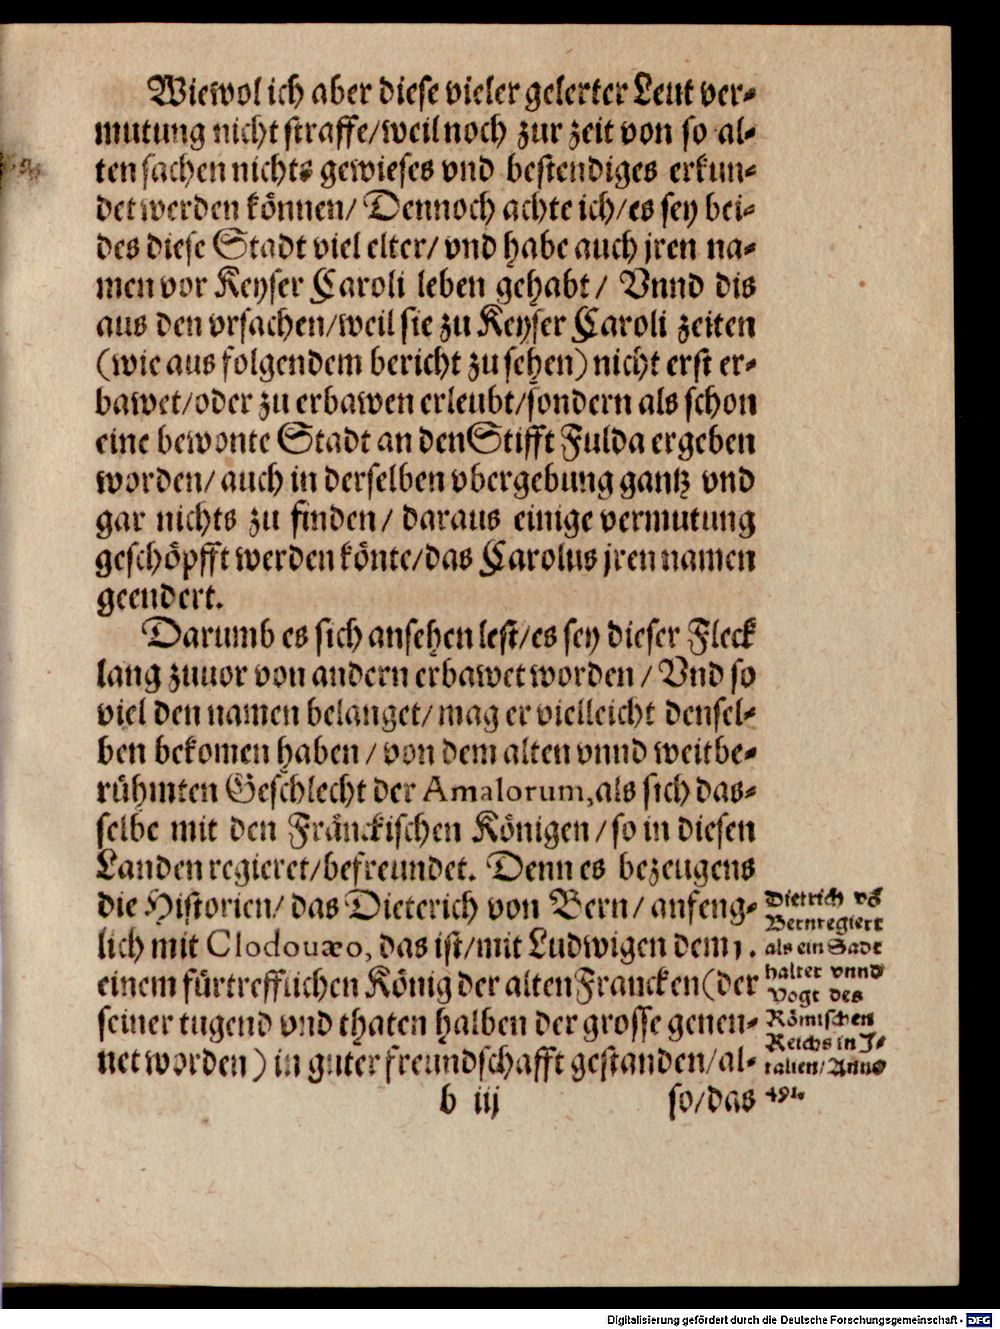 Wiewol ich aber diese vieler gelerter Leut ver-
mutung nicht straffe/weil noch zur zeit von so al-
ten sachen nichts gewieses vnd bestendiges erkun-
det werden können/ Dennoch achte ich/es sey bei-
des diese Stadt viel elter/ vnd habe auch jren na-
men vor Keyser Caroli leben gehabt/ Vnnd dis
aus den vrsachen/weil sie zu Keyser Caroli zeiten
(wie aus folgendem bericht zu sehen) nicht erst er-
bawet/oder zu erbawen erleubt/sondern als schon
eine bewonte Stadt an den Stifft Fulda ergeben
worden/ auch in derselben vbergebung gantz vnd
gar nichts zu finden/ daraus einige vermutung
geschöpfft werden könte/das Carolus jren namen
geendert.
Darumb es sich ansehen lest/es sey dieser Fleck
lang zuuor von andern erbawet worden/ Vnd so
viel den namen belanget/mag er vielleicht densel-
ben bekomen haben/ von dem alten vnnd weitbe-
rühmten Geschlecht der Amalorum,als sich das-
selbe mit den Fränckischen Königen/so in diesen
Landen regieret/befreundet. Denn es bezeugens
die Historien/ das Dieterich von Bern/ anfeng-
lich mit Clodouæo, das ist/mit Ludwigen dem 1.
einem fürtrefflichen König der alten Francken (der
seiner tugend vnd thaten halben der grosse genen-
net worden) in guter freundschafft gestanden/al-
b iij so/das
Dietrich võ
Bern regiert
als ein Sadt
halter vnnd
Vogt des
Römischen
Reichs in J-
talien/Anno
491.
Digitalisierung gefördert durch die Deutsche Forschungsgemeinschaft - DFG